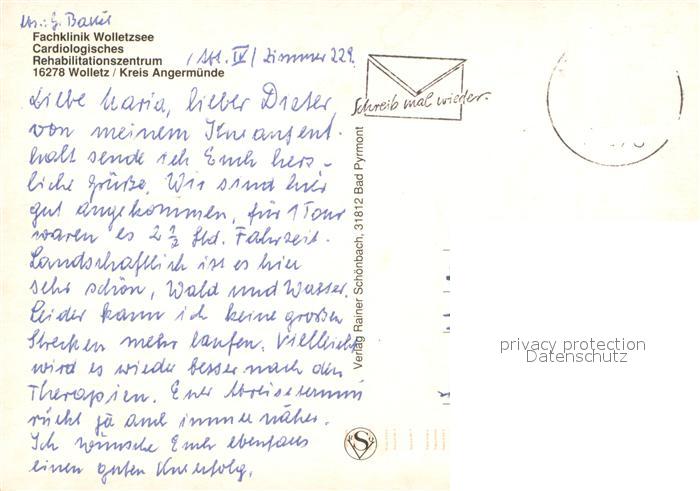 Fachklinik Wolletzsee
Cardiologisches
Rehabilitationszentrum
16278 Wolletz / Kreis Angermünde
/ Abt. IV / Zimmer 229.
Liebe Maria, lieber Dieter,
von meinem Kuraufent-
halt sende ich Euch herz-
liche Grüße. Wir sind hier
gut angekommen, für 1 Tour
waren es 2 1/2 Std. Fahrzeit.
Landschaftlich ist es hier
sehr schön, Wald und Wasser.
Leider kann ich keine großen
Strecken mehr laufen. Vielleicht
wird es wieder besser nach den
Therapien. Euer Abreisetermin
rückt ja auch immer näher.
Ich wünsche Euch ebenfalls
einen guten Kurerfolg.
Schreib mal wieder.
Verlag Rainer Schönbach, 31812 Bad Pyrmont
privacy protection
Datenschutz